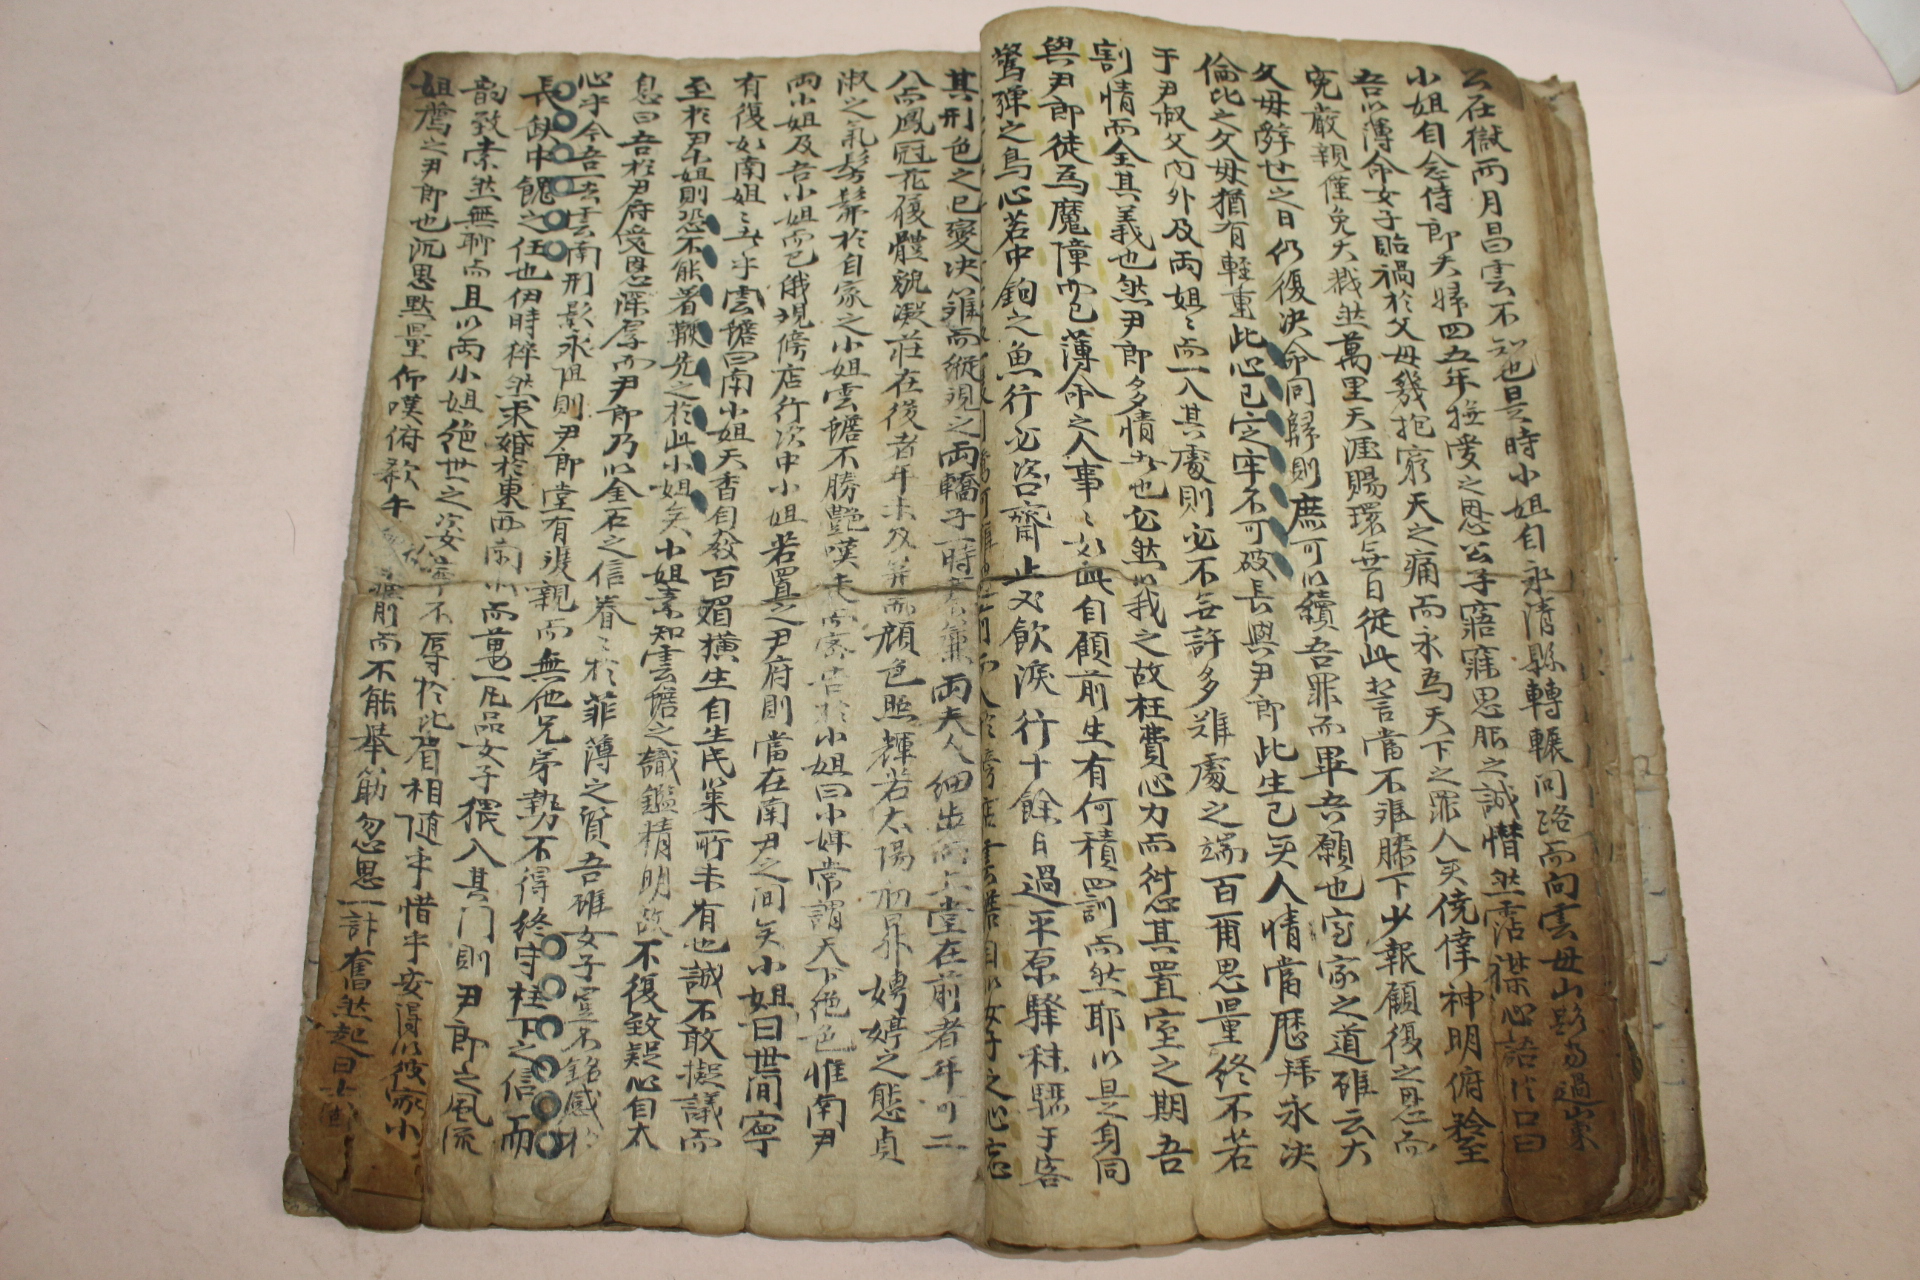 公在獄而月昌雲不知也是時小姐自永清縣轉輾问路而向雲母山
小姐自念侍郎大歸四五年撫愛之恩公子寤寐思服之誠憯然霑襟心語口曰
吾以薄命女子貽禍於父母幾抱窮天之痛而永為天下之罪人矣僥倖神明俯矜至
寃嚴親僅免大戮然萬里天涯賜環無日從此誓當不離膝下少報顧復之恩而
父母辭世之日仍復決命同歸則庶可以續吾罪而畢吾願也室家之道雖云大
倫比之父母猶有輕重此心已定牢不可破長與尹郎此生已矣人情當歷拜永決
于尹叔父內外及兩姐姐而一入其處則必不無許多難處之端百爾思量終不若
割情而全其義也然尹郎多情者也必然以我之故枉費心力而衍忘其置室之期吾
與尹郎徒為魔障而已薄命之人事事如此自顧前生有何積罰而然耶以是身同
驚弹之鳥心若中鉤之魚行必咨齋止又飲淚行十餘日過平原驛秣驢于客
其刑色之已變决䧺而縱現之両轎子一時兩夫人細步而上堂在前者年可二
八而鳳冠花履體貌凝莊在後者年未及笄而顔色照輝若太陽初昇娉婷之態貞
淑之氣髣髴於自家之小姐雲蟾不勝艶嘆夫而密告於小姐曰小婢常謂天下絶色惟南尹
両小姐及吾小姐而已俄現傍店行次中小姐若置之尹府則當在南尹之间矣小姐曰世间寧
有復如南姐姐者乎雲蟾曰南小姐天香自發百媚橫生自生民以來所未有也誠不敢擬議而
至於尹小姐則恐不能著鞭先之於此小姐矣小姐素知雲蟾之識鑑精明故不復致疑心自太
息曰吾於尹府受恩深厚而尹郎乃以金石之信眷眷於菲薄之質吾雖女子豈不銘感於
心乎今吾一去雲南刑影永阻則尹郎堂有雙親而無他兄弟勢不得終守柱下之信而
長缺中饋之任也伊時猝然求婚於東西南北而萬一凡品女子猥入其门則尹郎之風流
韵致索然無聊而且以両小姐絶世之姿寧不辱於比肩相随乎惜乎安得以彼家小
姐薦之尹郎也沉思默量仰嘆俯歎午前而不能舉筯忽思一計奮然起曰